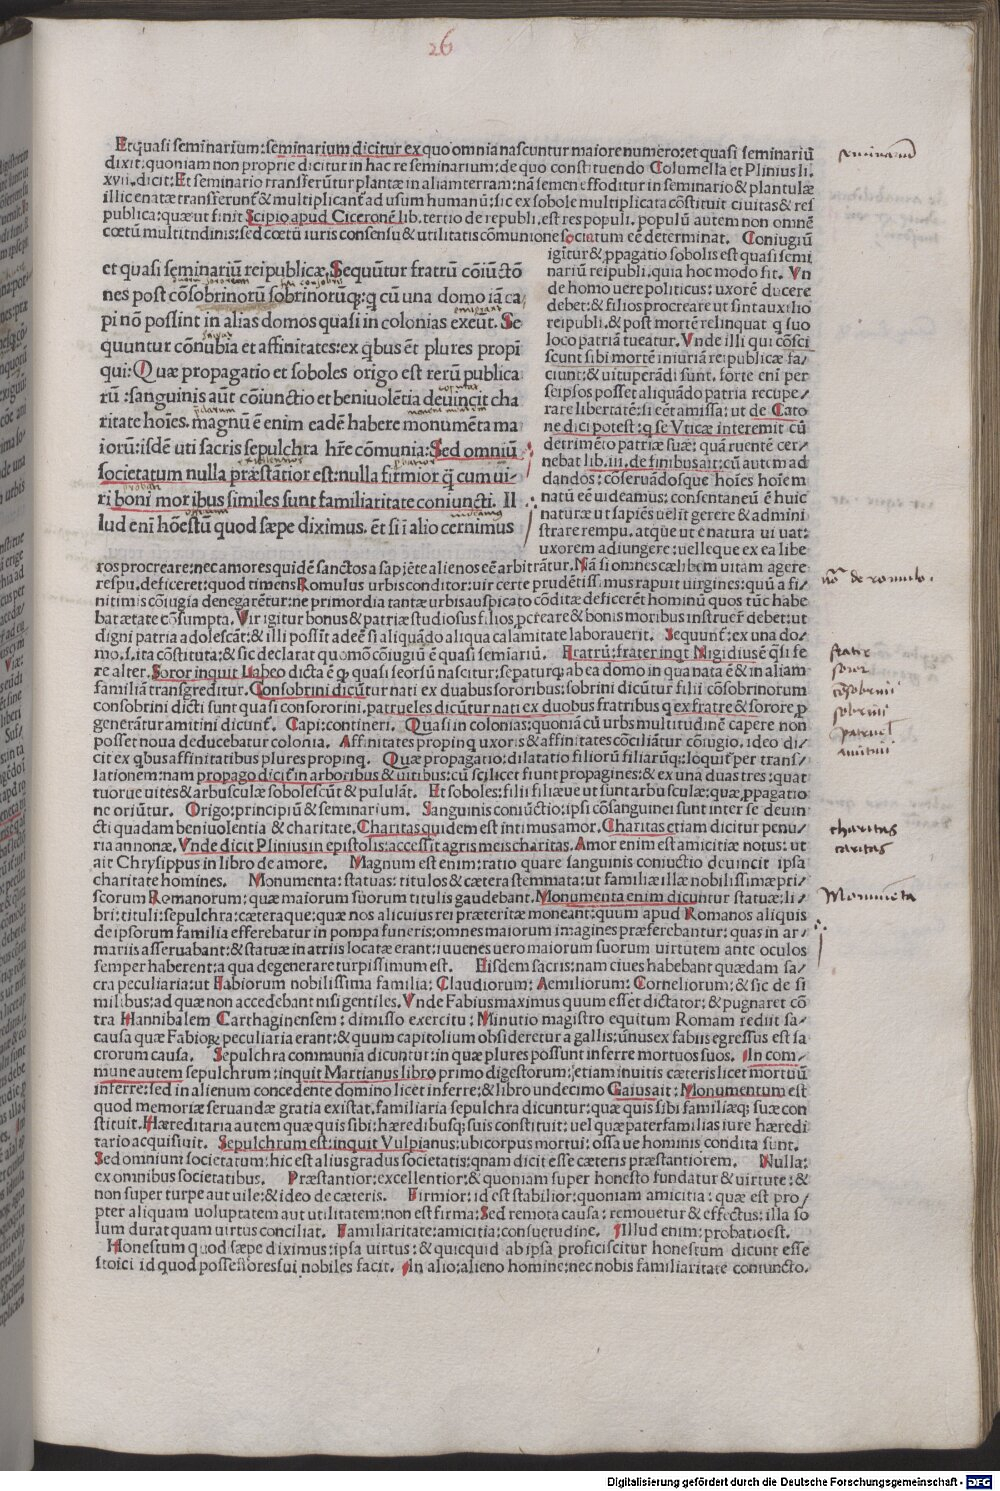 26
Et quasi seminarium: seminarium dicitur ex quo omnia nascuntur maiore numero: et quasi seminariū
dixit: quoniam non proprie dicitur in hac re seminarium: de quo constituendo Columella et Plinius li.
xvii. dicit: Et seminario transferūtur plantæ in aliam terram: nā semen effoditur in seminario & plantulæ
illic enatæ transferunt̄ & multiplicant̄ ad usum humanū: sic ex sobole multiplicata cōstituit ciuitas & res
publica: quæ ut finit Scipio apud Ciceronē lib. tertio de republi. est res populi. populū autem non omnē
cœtū multitudinis: sed cœtū iuris consensu & utilitatis cōmunione sociatum eē determinat. Coniugiū
igitur & ꝓpagatio sobolis est quasi semi
nariū reipubli. quia hoc modo fit. Vn
de homo uere politicus: uxorē ducere
debet: & filios procreare ut sint auxilio
reipubli. & post mortē relinquat q suo
loco patriā tueatur. Vnde illi qui cōsci
scunt sibi mortē iniuriā reipublicæ fa/
ciunt: & uituperādi sunt. forte eni per
seipsos posset aliquādo patria recupe/
rare libertatē: si eēt amissa: ut de Cato
ne dici potest: q se Vticæ interemit cū
detrimēto patriæ suæ: quā ruentē cer/
nebat lib. iii. de finibus ait: cū autem ad
dandos: cōseruādosque hoīes hoīem
natū eē uideamus: consentaneū ē huic
naturæ ut sapiēs uelit gerere & admini
strare rempu. atque ut e natura uiuat:
uxorem adiungere: uelleque ex ea libe
et quasi seminariū reipublicæ. Sequūtur fratrū cōiūctō
nes post cōsobrinorū sobrinorūqꝫ: q cū una domo iā ca/
pi nō possint in alias domos quasi in colonias exeūt. Se
quuntur cōnubia et affinitates: ex qbus ēt plures propī
qui: Quæ propagatio et soboles origo est rerū publica
rū: sanguinis aūt cōiunctio et beniuolētia deuincit cha
ritate hoīes. magnū ē enim eadē habere monumēta ma
iorū: iisdē uti sacris sepulchra hr̄e cōmunia: Sed omniū
societatum nulla præstātior est: nulla firmior q̄ cum ui/
ri boni moribus similes sunt familiaritate coniuncti. Il
lud enī hōestū quod sæpe diximus. ēt si ī alio cernimus
ros procreare: nec amores quidē sanctos a sapiēte alienos eē arbitrātur. Nā si omnes cælibem uitam agere
respu. deficeret: quod timens Romulus urbis conditor: uir certe prudētissimus rapuit uirgines: quū a fi/
nitimis cōiugia denegarētur: ne primordia tantæ urbis auspicato cōditæ deficerēt hominū quos tūc habe
bat ætate cōsumpta. Vir igitur bonus & patriæ studiosus filios ꝓcreare & bonis moribus instruer̄ debet: ut
digni patria adolescāt: & illi possīt adeē si aliquādo aliqua calamitate laborauerit. Sequunt̄: ex una do/
mo. s. ita cōstituta: & sic declarat quomō cōiugiū ē quasi semīariū. Fratrū: frater inqt Nigidius ē qsi fe
re alter. Soror inquit Labeo dicta ē q quasi seorsū nascitur: sepaturq ab ea domo in qua nata ē & in aliam
familiā transgreditur. Consobrini dicūtur nati ex duabus sororibus: sobrini dicūtur filii cōsobrinorum
consobrini dicti sunt quasi consororini. patrueles dicūtur nati ex duobus fratribus q ex fratre & sorore ꝓ
generātur amitini dicunt̄. Capi: contineri. Quasi in colonias: quoniā cū urbs multitudinē capere non
posset noua deducebatur colonia. Affinitates propinq uxoris & affinitates cōciliātur cōiugio. ideo di/
cit ex qbus affinitatibus plures propinq. Quæ propagatio: dilatatio filiorū filiarūq: loquit̄ per trans/
lationem: nam propago dicit̄ in arboribus & uitibus: cū scilicet fiunt propagines: & ex una duas tres: quat
tuorue uites & arbusculæ sobolescūt & pululāt. Et soboles: filii filiæue ut sunt arbusculæ: quæ ꝓpagatio
ne oriūtur. Origo: principiū & seminarium. Sanguinis coniūctio: ipsi cōsanguinei sunt inter se deuin
cti quadam beniuolentia & charitate. Charitas quidem est intimus amor. Charitas etiam dicitur penu/
ria annonæ. Vnde dicit Plinius in epistolis: accessit agris meis charitas. Amor enim est amicitiæ notus: ut
ait Chrysippus in libro de amore. Magnum est enim: ratio quare sanguinis coniuctio deuincit ipsa
charitate homines. Monumenta: statuas: titulos & cætera stemmata: ut familiæ illæ nobilissimæ pri/
scorum Romanorum: quæ maiorum suorum titulis gaudebant. Monumenta enim dicuntur statuæ: li/
bri: tituli: sepulchra: cæteraque: quæ nos alicuius rei præteritæ moneant: quum apud Romanos aliquis
de ipsorum familia efferebatur in pompa funeris: omnes maiorum imagines præferebantur: quas in ar/
mariis asseruabant: & statuæ in atriis locatæ erant: iuuenes uero maiorum suorum uirtutem ante oculos
semper haberent: a qua degenerare turpissimum est. Eisdem sacris: nam ciues habebant quædam sa/
cra peculiaria: ut Fabiorum nobilissima familia: Claudiorum: Aemiliorum: Corneliorum: & sic de si
milibus: ad quæ non accedebant nisi gentiles. Vnde Fabius maximus quum esset dictator: & pugnaret cō
tra Hannibalem Carthaginensem: dimisso exercitu: Minutio magistro equitum Romam rediit sa/
causa quæ Fabiorꝫ peculiaria erant: & quum capitolium obsideretur a gallis: ūnus ex fabiis egressus est sa
crorum causa. Sepulchra communia dicuntur: in quæ plures possunt inferre mortuos suos. In com/
mune autem sepulchrum: inquit Martianus libro primo digestorum: etiam inuitis cæteris licet mortuū
inferre: sed in alienum concedente domino licet inferre: & libro undecimo Gaius ait: Monumentum est
quod memoriæ seruandæ gratia existat. familiaria sepulchra dicuntur: quæ quis sibi familiæq; suæ con
stituit. Hæreditaria autem quæ quis sibi: hæredibusq; suis constituit: uel quæ paterfamilias iure hæredi
tario acquisiuit. Sepulchrum est: inquit Vulpianus: ubi corpus mortui: ossa ue hominis condita sunt.
Sed omnium societatum: hic est alius gradus societatis: qnam dicit esse cæteris præstantiorem. Nulla:
ex omnibus societatibus. Præstantior: excellentior: & quoniam super honesto fundatur & uirtute: &
non super turpe aut uile: & ideo de cæteris. Firmior: id est stabilior: quoniam amicitia: quæ est pro/
pter aliquam uoluptatem aut utilitatem: non est firma: Sed remota causa: remouetur & effectus: illa so
lum durat quam uirtus conciliat. Familiaritate: amicitia: consuetudine. Illud enim: probatio est.
Honestum quod sæpe diximus: ipsa uirtus: & quicquid ab ipsa proficiscitur honestum dicunt esse
stoici id quod possessores sui nobiles facit. In alio: alieno homine: nec nobis familiaritate coniuncto.
nō de romulo.
frater
soror
cōsobrini
sobrini
patruel
amitini
charitas
caritas
Monumēta
Digitalisierung gefördert durch die Deutsche Forschungsgemeinschaft - DFG